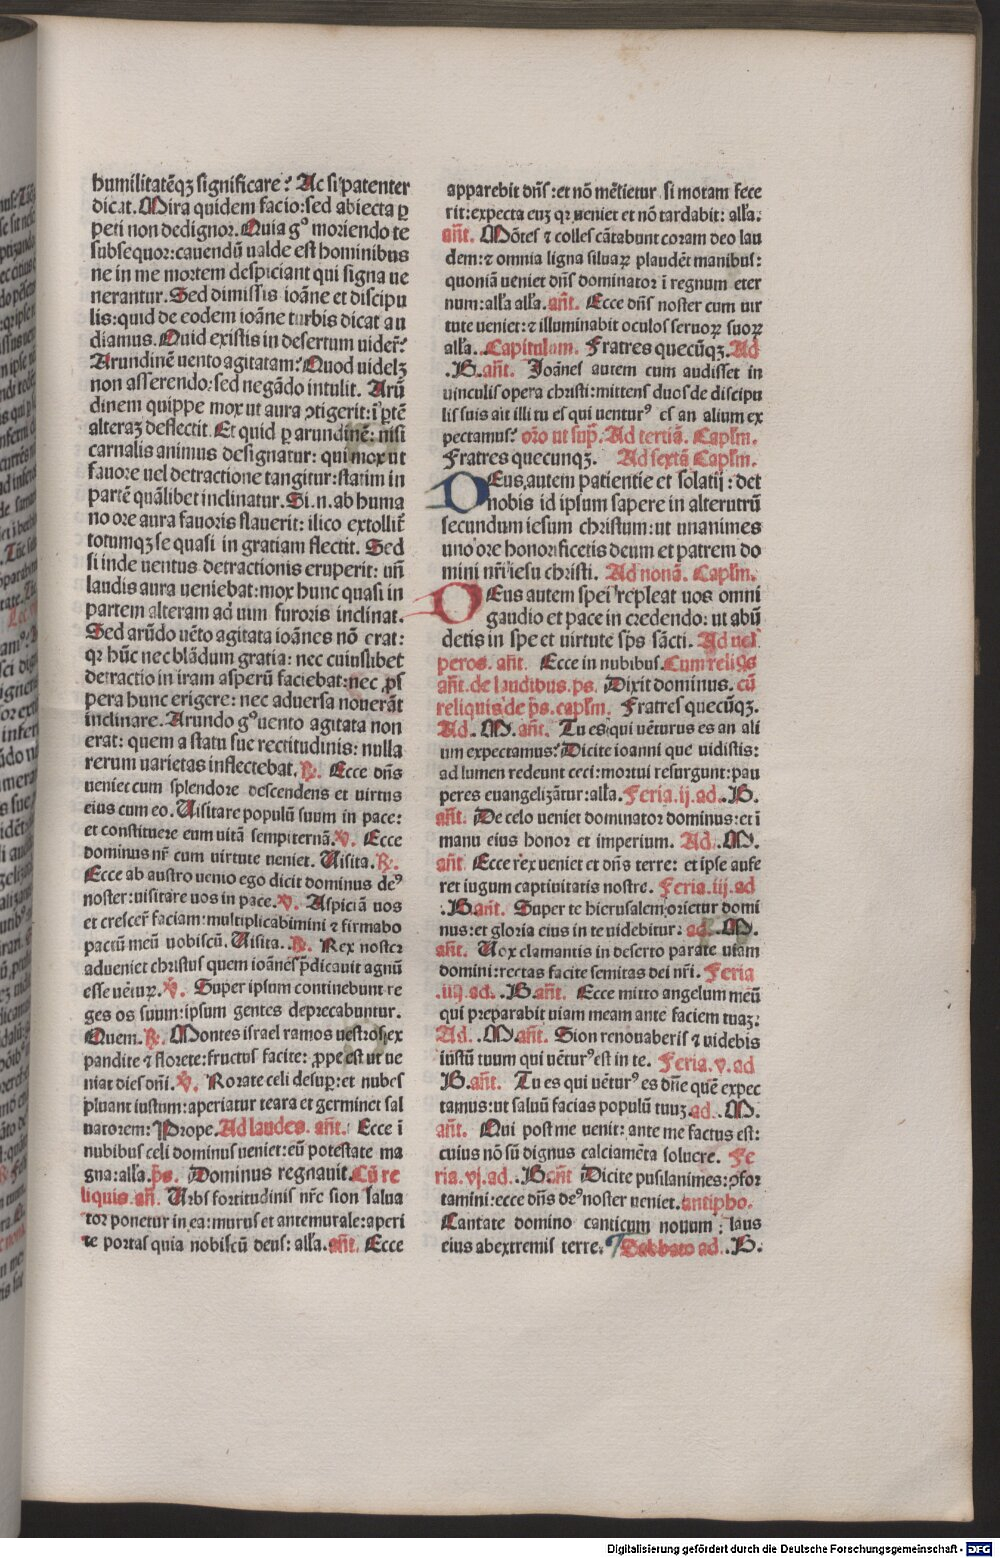 humilitatēqꝫ significare? Ac si patenter
dicat. Mira quidem facio: sed abiecta ꝑ
peti non dedignor. Quia gͦ moriendo te
subsequor: cauendū ualde est hominibus
ne in me mortem despiciant qui signa ue
nerantur. Sed dimissis ioāne et discipu
lis: quid de eodem ioāne turbis dicat au
diamus. Quid existis in desertum uider̄?
Arundinē uento agitatam? Quod uidelꝫ
non asserendo: sed negādo intulit. Arū
dinem quippe mox ut aura ↄtigerit: ī ꝑtē
alteraꝫ deflectit. Et quid ꝑ arundinē: nisi
carnalis animus designatur: qui mox ut
fauore uel detractione tangitur: statim in
partē quālibet inclinatur. Si .n. ab huma
no ore aura fauoris flauerit: ilico extollit̄
totumqꝫ se quasi in gratiam flectit. Sed
si inde uentus detractionis eruperit: uñ
laudis aura ueniebat: mox hunc quasi in
partem alteram ad uim furoris inclinat.
Sed arūdo uēto agitata ioānes nō erat:
qꝛ hūc nec blādum gratia: nec cuiuslibet
detractio in iram asperū faciebat: nec ꝓs
pera hunc erigere: nec aduersa nouerāt
inclinare. Arundo gͦ uento agitata non
erat: quem a statu sue rectitudinis: nulla
rerum uarietas inflectebat. ℟. Ecce dñs
ueniet cum splendore descendens et uirtus
eius cum eo. Uisitare populū suum in pace:
et constituere eum uitā sempiternā. ℣. Ecce
dominus nr̄ cum uirtute ueniet. Uisita. ℟.
Ecce ab austro uenio ego dicit dominus deꝰ
noster: uisitare uos in pace. ℣. Aspiciā uos
et crescer̄ faciam: multiplicabimini ⁊ firmabo
pactū meū uobiscū. Uisita. ℟. Rex noster
adueniet christus quem ioānes p̄dicauit agnū
esse uētuꝝ. ℣. Super ipsum continebunt re
ges os suum: ipsum gentes deprecabuntur.
Quem. ℟. Montes israel ramos uestros ex
pandite ⁊ florete: fructus facite: ꝓpe est ut ue
niat dies dñi. ℣. Rorate celi desuꝑ: et nubes
pluant iustum: aperiatur terra et germinet sal
uatorem: Prope. Ad laudes. añt. Ecce ī
nubibus celi dominus ueniet: cū potestate ma
gna: alľa. p̄s. Dominus regnauit. Cū re
liquis. añ. Urbs fortitudinis nr̄e sion salua
tor ponetur in ea: murus et antemurale: aperi
te portas quia nobiscū deus: alľa. añt. Ecce
apparebit dñs: et nō mētietur si motam fece
rit: expecta euꝫ qꝛ ueniet et nō tardabit: alľa.
añt. Mōtes ⁊ colles cātabunt coram deo lau
dem: ⁊ omnia ligna siluaꝝ plaudēt manibus:
quoniā ueniet dñs dominator ī regnum eter
num: alľa alľa. añt. Ecce dñs noster cum uir
tute ueniet: ⁊ illuminabit oculos seruoꝝ suoꝝ
alľa. Capitulum. Fratres quecūqꝫ. Ad
.B. añt. Joānes autem cum audisset in
uinculis opera christi: mittens duos de discipu
lis suis ait illi tu es qui uenturꝰ es an alium ex
pectamus? oŕo ut suꝑ. Ad tertiā. Capľm.
Fratres quecunqꝫ. Ad sextā Capľm.
DEus autem patientie et solatij: det
nobis id ipsum sapere in alterutrū
secundum iesum christum: ut unanimes
uno ore honorificetis deum et patrem do
mini nr̄i iesu christi. Ad nonā. Capľm.
DEus autem spei repleat uos omni
gaudio et pace in credendo: ut abū
detis in spe et uirtute sp̄s sācti. Ad ues
peros. añt. Ecce in nubibus. Cum reliq̄s
añt. de laudibus. ps. Dixit dominus. cū
reliquis de p̄s. capľm. Fratres quecūqꝫ.
Ad .M. añt. Tu es qui uēturus es an ali
um expectamus? Dicite ioanni que uidistis:
ad lumen redeunt ceci: mortui resurgunt: pau
peres euangelizātur: alľa. Feria. ij. ad. .B.
añt. De celo ueniet dominator dominus: et ī
manu eius honor et imperium. Ad. .M.
añt Ecce rex ueniet et dñs terre: et ipse aufe
ret iugum captiuitatis nostre. Feria. iij. ad
.B. añt. Super te hierusalem orietur domi
nus: et gloria eius in te uidebitur: ad. .M.
añt. Uox clamantis in deserto parate uiam
domini: rectas facite semitas dei nr̄i. Feria
.iiij. ad. .B. añt. Ecce mitto angelum meū
qui preparabit uiam meam ante faciem tuaꝫ:
Ad. .M. añt. Sion renouaberis ⁊ uidebis
iustū tuum qui uēturꝰ est in te. Feria. v. ad
B. añt. Tu es qui uēturꝰ es dñe quē expec
tamus: ut saluū facias populū tuuꝫ. ad. .M.
añt. Qui post me uenit: ante me factus est:
cuius nō sū dignus calciamēta soluere. Fe
ria. vj. ad. .B. añt Dicite pusilanimes: ↄfor
tamini: ecce dñs deꝰ noster ueniet. antipho.
Cantate domino canticum nouum: laus
eius ab extremis terre. Sabbato ad. .B.
Digitalisierung gefördert durch die Deutsche Forschungsgemeinschaft - DFG